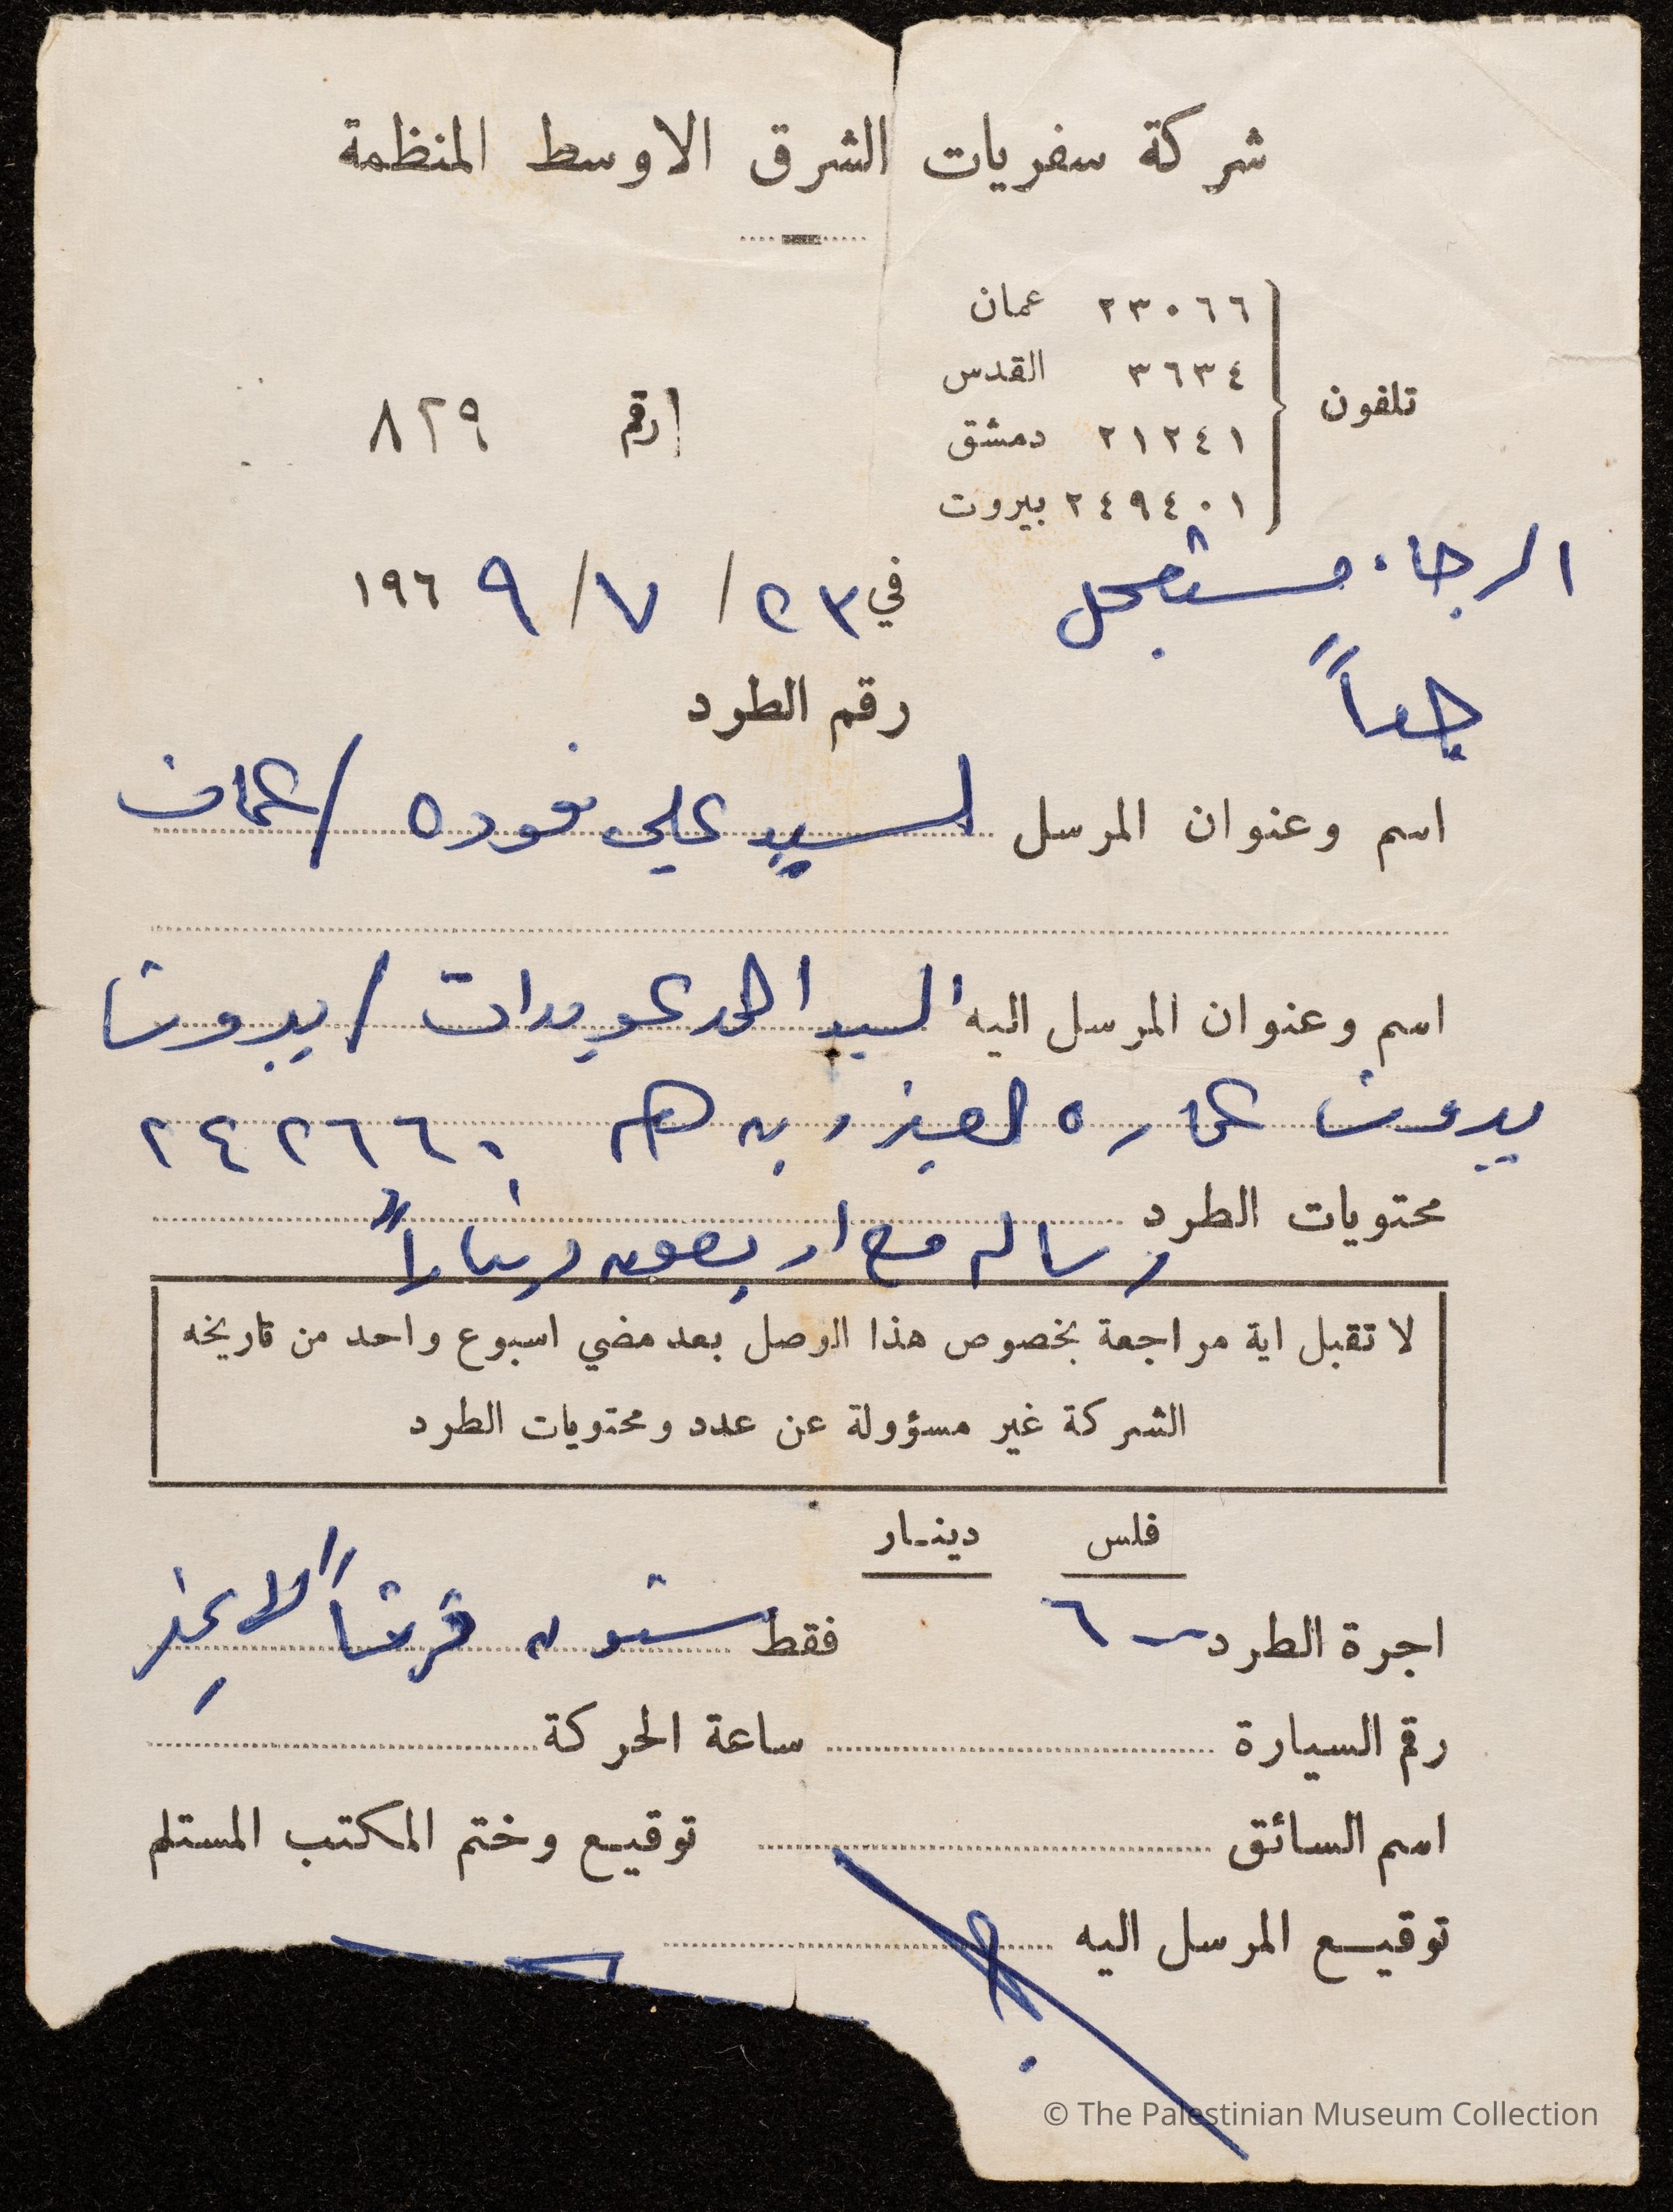 شركة سفريات الشرق الاوسط المنظمة
تلفون
٢٣٠٦٦ عمان
٣٦٣٤ القدس
٢١٢٤١ دمشق
٢٤٩٤٠١ بيروت
الرقم ٨٢٩
الرجاء مستعجل
جداً
في ٢٣ / ٧ / ١٩٦٩
رقم الطرد
اسم وعنوان المرسل السيد علي فوده / عمان
اسم وعنوان المرسل اليه السيد احمد عويدات / بيروت
بيروت عماره العيزريه ٢٤٢٦٦٠
محتويات الطرد
رساله مع اربعون ديناراً
لا تقبل اية مراجعة بخصوص هذا الوصل بعد مضي اسبوع واحد من تاريخه
الشركة غير مسؤولة عن عدد ومحتويات الطرد
فلس دينـار
اجرة الطرد ٦ فقط ستون قرشاً لا غير
رقم السيارة ساعة الحركة
اسم السائق توقيـع وختم المكتب المستلم
توقيـع المرسل اليه
© The Palestinian Museum Collection